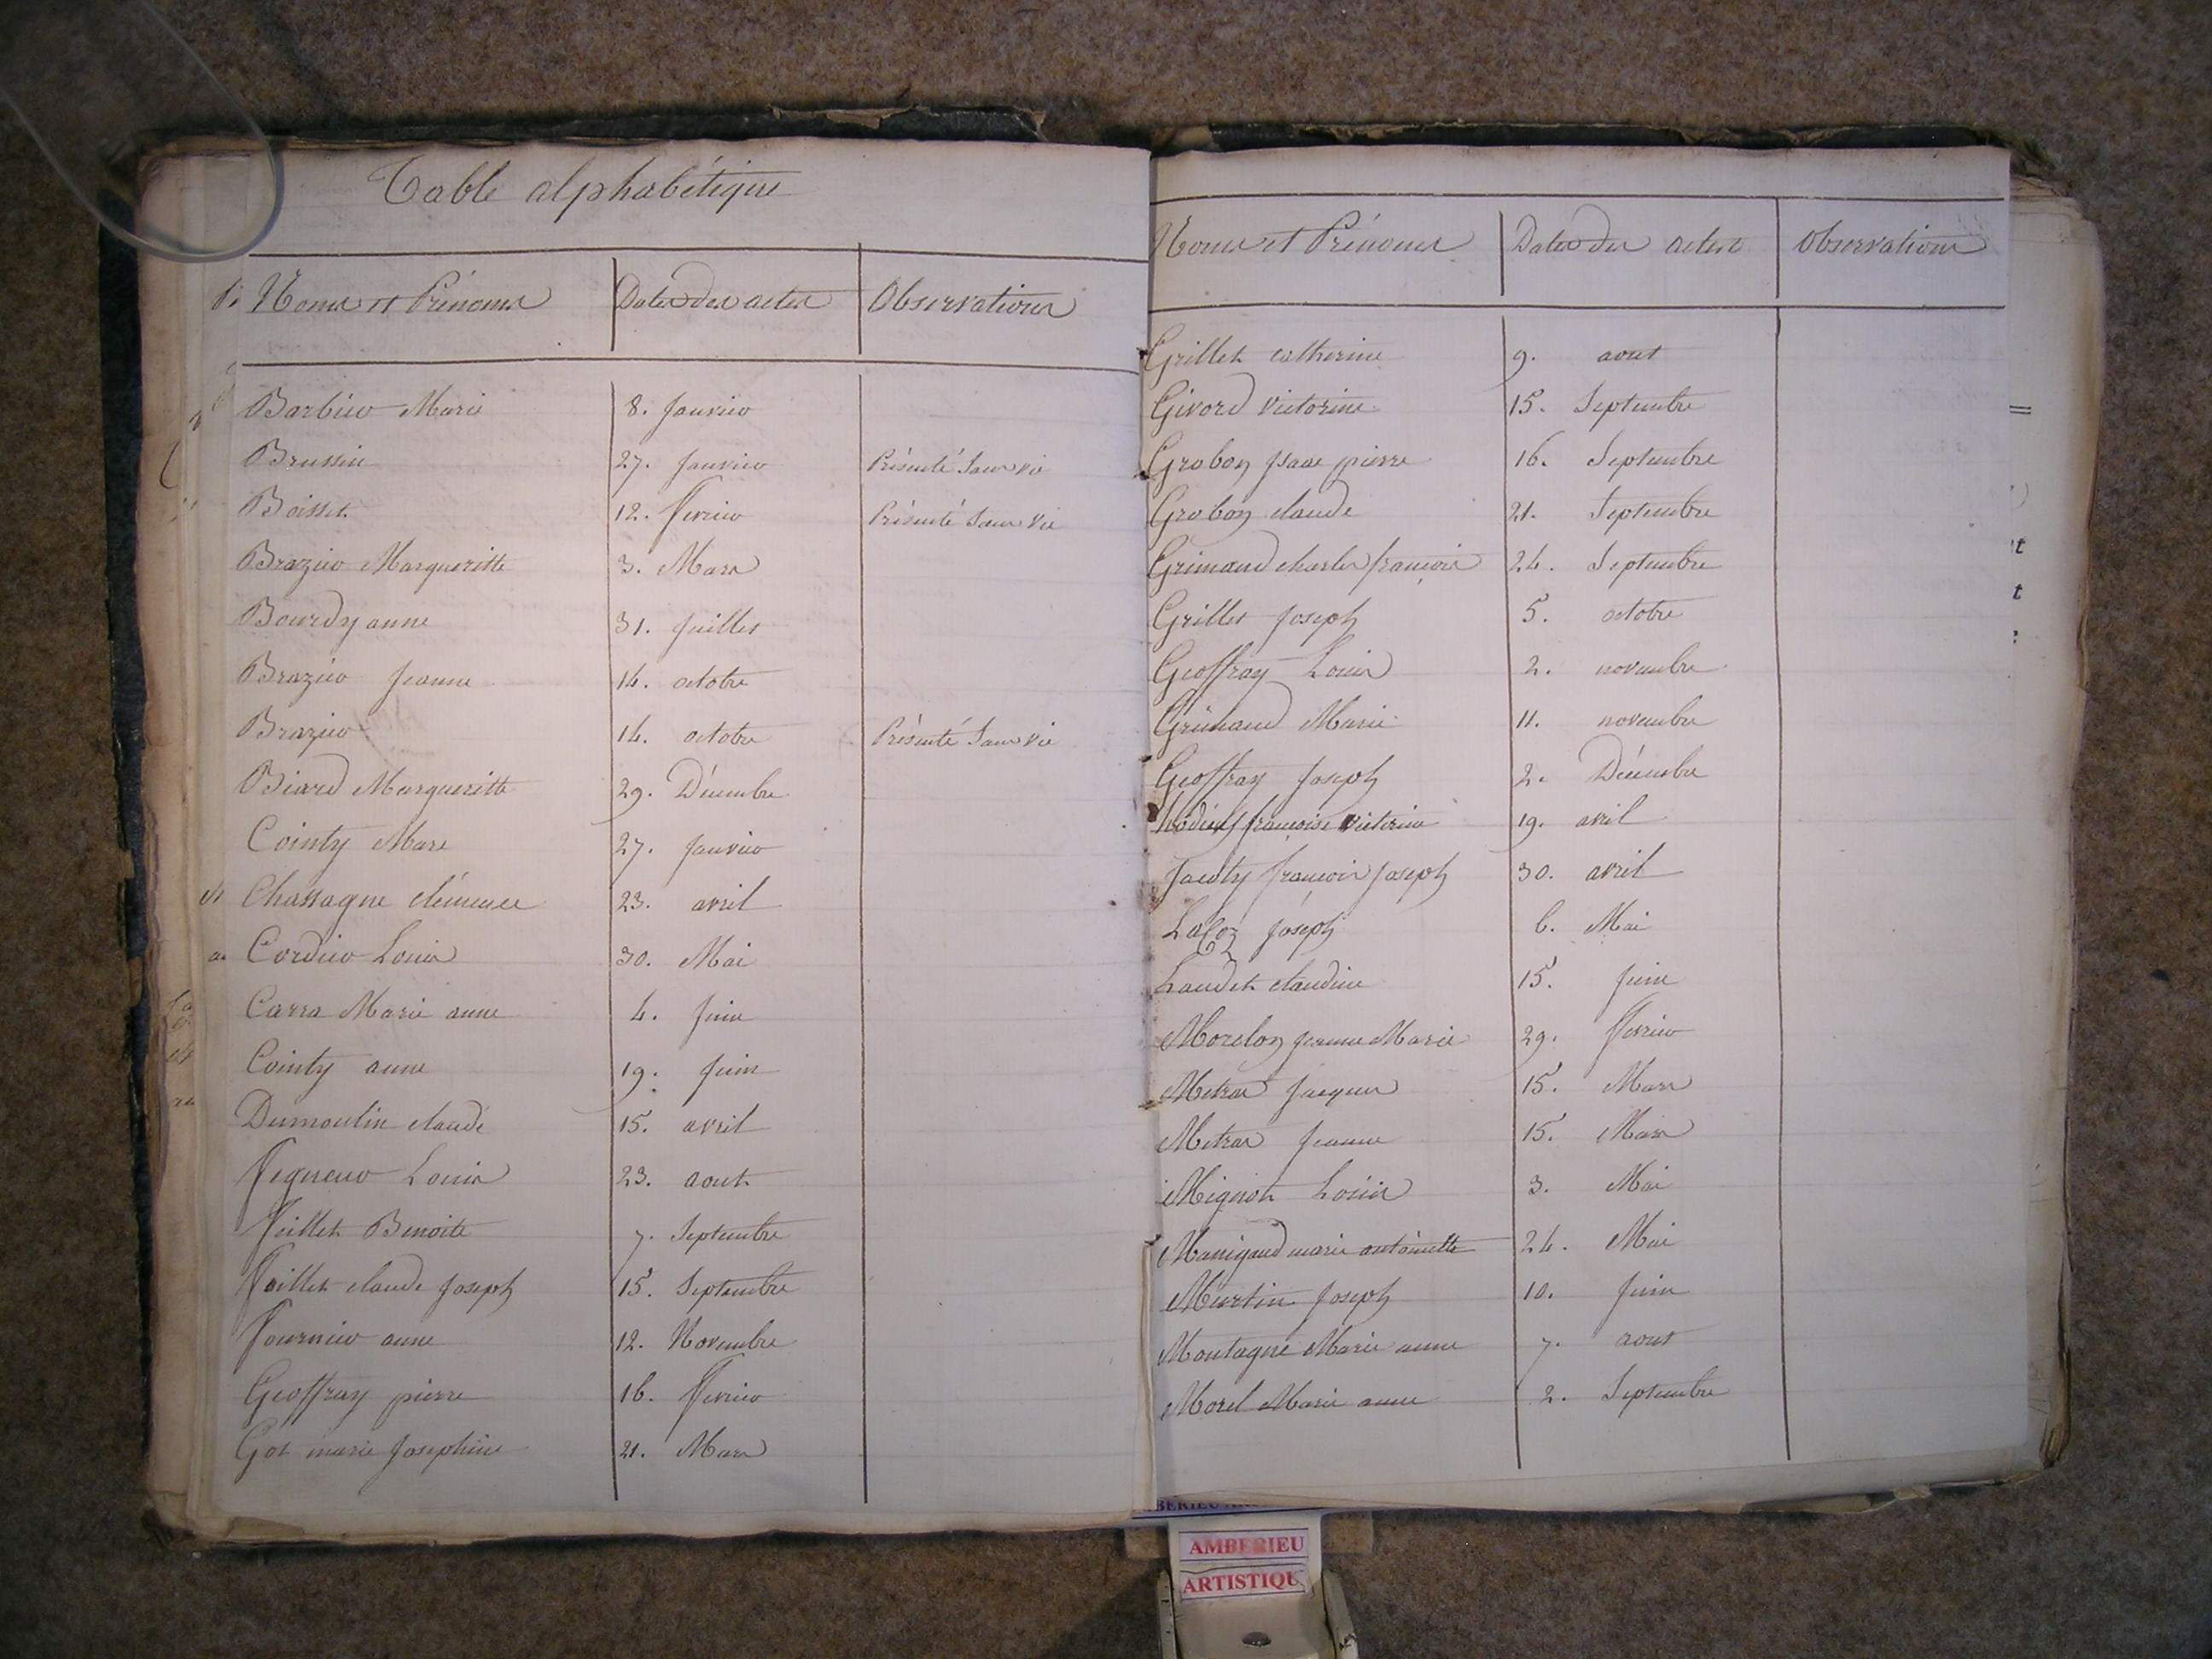 Table alphabétique
Noms et Prénoms Dates des actes Observations
Barbier Marie 8. Janvier
Brussin 27. Janvier Présenté Sans vie
Boisset 12. Fevrier Présenté Sans vie
Brazier Margueritte 3. Mars
Bourdy anne 31. Juillet
Brazier Jeanne 14. octobre
Brazier 14. octobre Présenté Sans vie
Biard Margueritte 29. Décembre
Cointy Marc 27. Janvier
Chassagne clémence 23. avril
Cordier Louis 30. Mai
Carra Marie anne 4. Juin
Cointy anne 19. Juin
Dumoulin claude 15. avril
Louis 23. aout
Juillet Benoite 7. Septembre
claude Joseph 15. Septembre
Fournier anne 12. Novembre
Geoffray pierre 16. Fevrier
Got marie Josephine 21. Mars
Noms et Prénoms Dates des actes Observations
Grillet catherine 9. aout
Givord victorine 15. Septembre
Grobon Isaac pierre 16. Septembre
Grobon claude 21. Septembre
Grimaud charles françois 24. Septembre
Grillet Joseph 5. octobre
Geoffray Louis 2. novembre
Grimaud Marie 11. novembre
Geoffray Joseph 2. Décembre
françoise 19. avril
françois Joseph 30. avril
Joseph 6. Mai
Laudet claudine 15. Juin
Morelon Jeanne Marie 29. Fevrier
Metras Jacques 15. Mars
Metras Jeanne 15. Mars
Mignot Louis 3. Mai
Manigaud marie antoinette 24. Mai
Martin Joseph 10. Juin
Montagne Marie anne 7. aout
Morel Marie anne 2. Septembre
AMBERIEU
ARTISTIQU